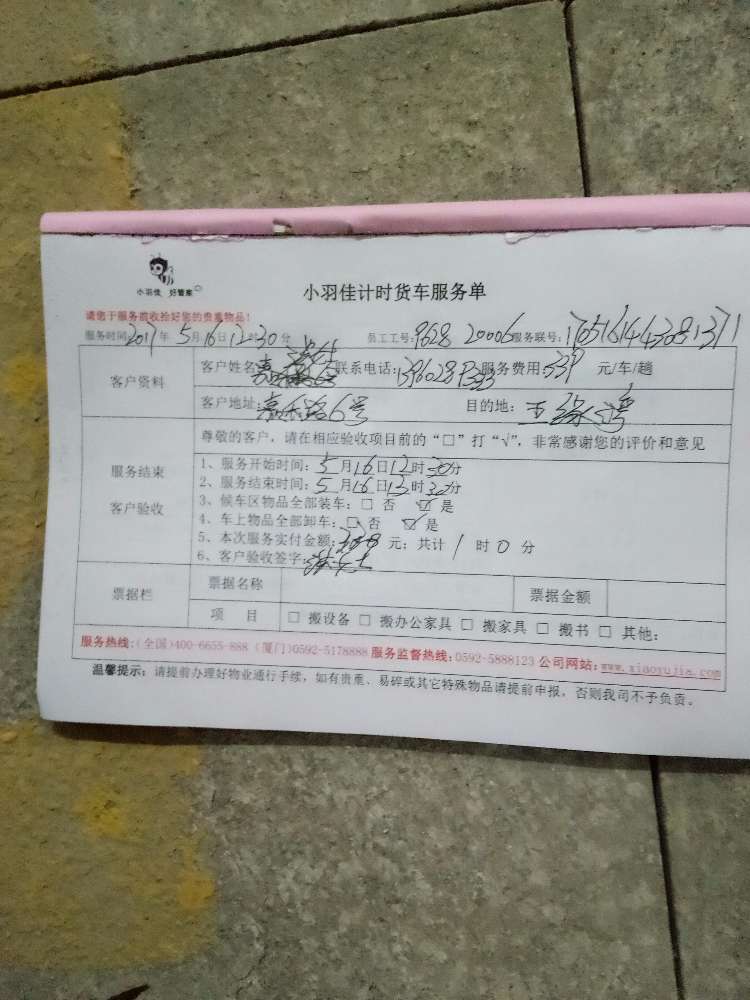 小羽佳 好管家
小羽佳计时货车服务单
请您于服务前收拾好您的贵重物品!
服务时间2017年5月16日12时30分 员工工号:9628 20006服务联号:
客户资料
客户姓名: 联系电话: 服务费用:339 元/车/趟
客户地址:嘉禾路6号 目的地:
尊敬的客户,请在相应验收项目前的“□”打“√”,非常感谢您的评价和意见
服务结束
客户验收
1、服务开始时间:5月16日12时30分
2、服务结束时间:5月16日13时30分
3、候车区物品全部装车:□ 否 ☑ 是
4、车上物品全部卸车:□ 否 ☑ 是
5、本次服务实付金额: 元;共计1时0分
6、客户验收签字:
票据栏
票据名称 票据金额
项 目 □ 搬设备 □ 搬办公家具 □ 搬家具 □ 搬书 □ 其他:
服务热线:(全国)400-6655-888 (厦门)0592-5178888 服务监督热线:0592-5888123 公司网站:www.xiaoyujia.com
温馨提示:请提前办理好物业通行手续,如有贵重、易碎或其它特殊物品请提前申报,否则我司不予负责。